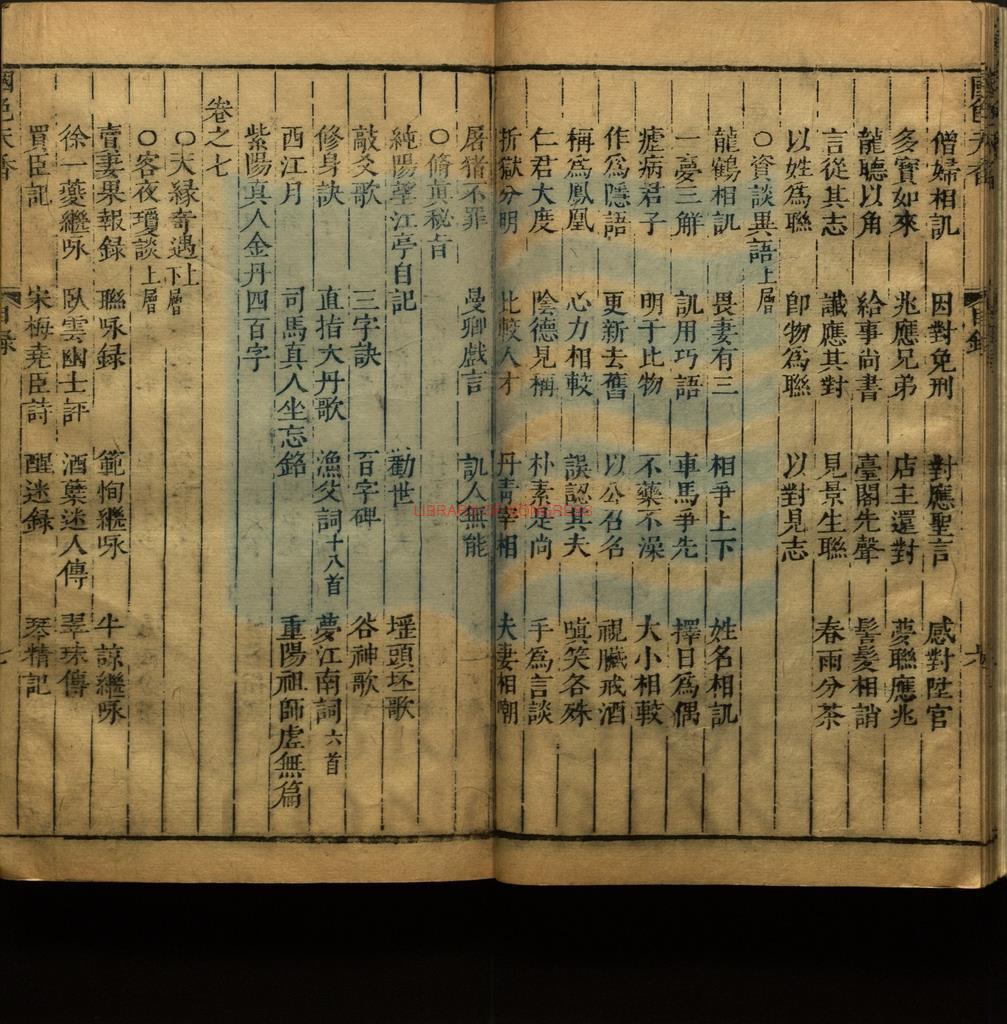 僧婦相訊 因對免刑 對應聖言 感對陞官
多寳如來 兆應兄弟 店主還對 夢聯應兆
龍聽以角 給事尚書 臺閣先聲 髻髮相誚
言從其志 讖應其對 見景生聯 春雨分茶
以姓爲聯 卽物爲聯 以對見志
○資談異語上層
龍鶴相訊 畏妻有三 相爭上下 姓名相訊
一憂三解 訊用巧語 車馬爭先 擇日爲偶
瘧病君子 明于比物 不藥不澡 大小相較
作爲隱語 更新去舊 以公名名 視臟戒酒
稱爲鳳凰 心力相較 誤認其夫 嗔笑各殊
仁君大度 陰德見稱 朴素是尚 手爲言談
折獄分明 比較人才 丹靑宰相 夫妻相嘲
屠猪不罪 曼卿戲言 訊人無能
○脩眞秘旨
純陽望江亭自記 勸世 堽頭坯歌
敲爻歌 三字訣 百字碑 谷神歌
修身訣 直指大丹歌 漁父詞十八首 夢江南詞六首
西江月 司馬真人坐忘銘 重陽祖師虛無篇
紫陽真人金丹四百字
卷之七
○天緣奇遇上下層
○客夜瓊談上層
賣妻果報録 聯咏録 範恂繼咏 牛諒繼咏
徐一夔繼咏 臥雲幽士評 酒蘖迷人傳 翠珠傳
買臣記 宋梅堯臣詩 醒迷録 琴精記
國色天香 目録 七
LIBRARY OF CONGRESS